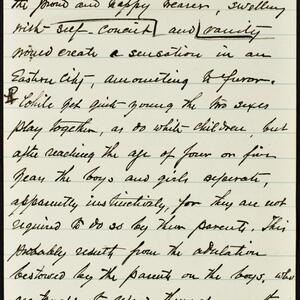 the proud and happy wearer, swelling
with self-conceit and vanity
would create a sensation in an
Eastern City, amounting to furor.
While yet quite young the two sexes
play together, as do white children, but
after reaching the age of four or five
years the boys and girls separate,
apparently instinctively, for they are not
required to do so by their parents. This
probably results from the adulation
bestowed by the parents on the boys, who